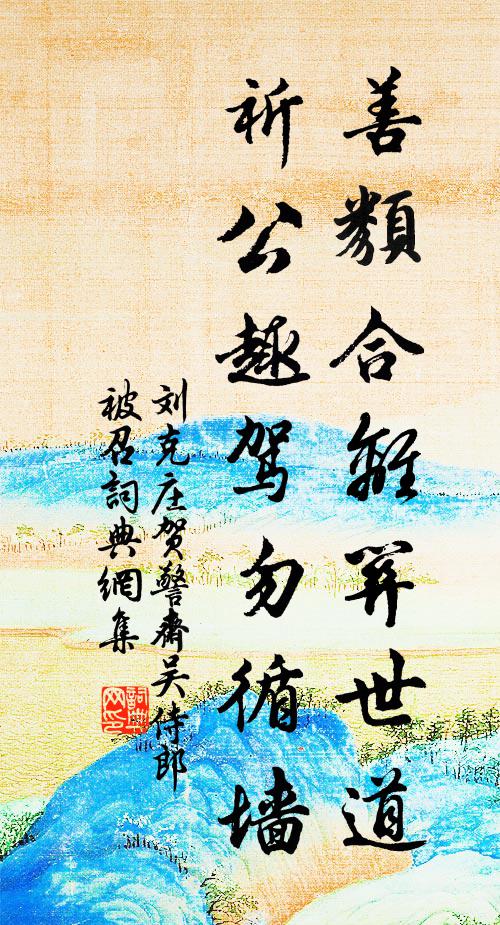 善類合離关世道
祈公趣驾勿循墙
刘克庄贺警斋吴侍郎
被召詞典網集